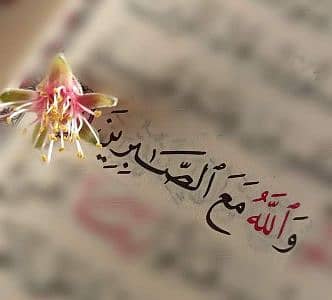 وَٱللَّهُ مَعَ ٱلصَّـٰبِرِينَ